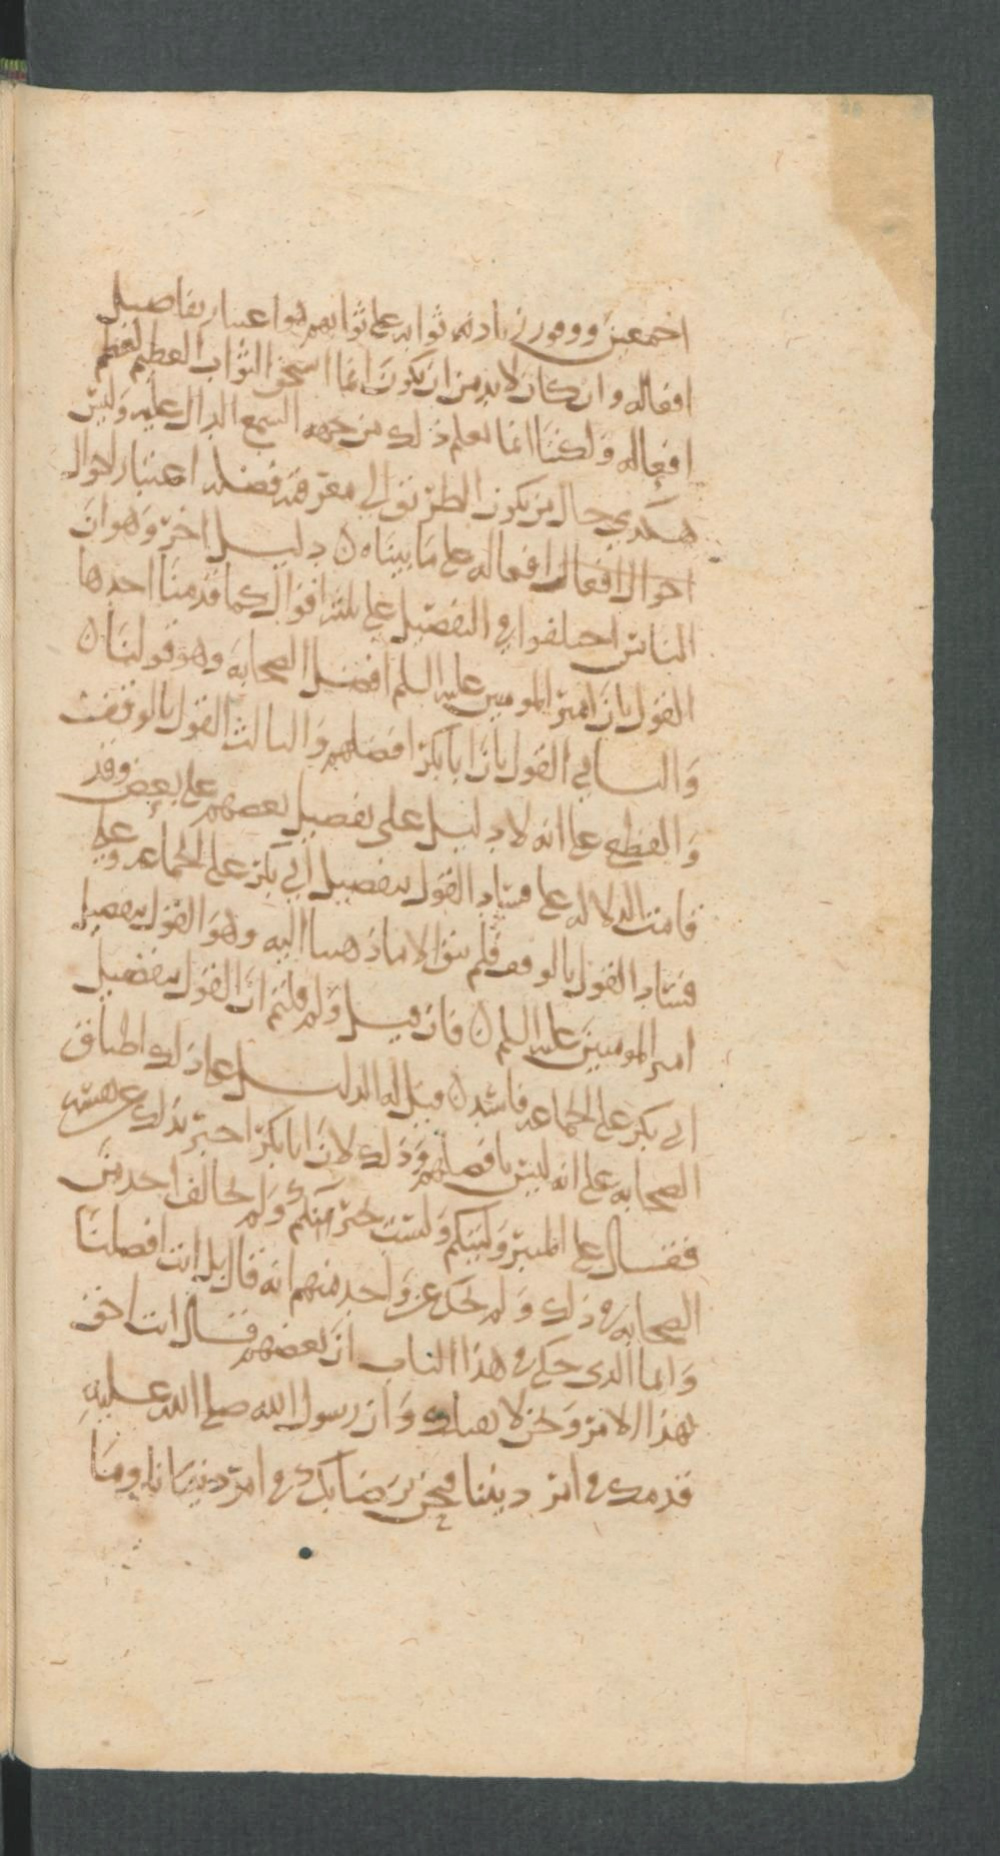 اجمعين ووفور زيادته ثوابه على ثوابهم هو اعتبار تفاصيل
افعاله وان كان لا بد من ان يكون انما استحق الثواب العظيم لعظم
افعاله ولكننا انما نعلم ذلك من جهة السمع الدال عليه وليس
هكذي حال من يكون الطريق الى معرفة فضله اعتبار لاحوال
احوال افعال افعاله على ما بيناه ن دليل اخر وهو ان
الناس اختلفوا في التفضيل على ثلثة اقوال كما قدمنا احدها
القول بان امير المومنين عليه السلم افضل الصحابه وهو قولنا ن
والثاني القول بان ابا بكر افضلهم والثالث القول بالوقف
والقطع على انه لا دليل على تفضيل بعضهم على بعض وقد
قامت الدلاله على فساد القول بتفضيل ابي بكر على الجماعه وعلى
فساد القول بالوقف فلم يبق الا ما ذهبنا اليه وهو القول بتفضيل
امير المومنين عليه السلم ن فان قيل ولم قلتم ان القول بتفضيل
ابي بكر على الجماعه فاسد ن قيل له الدليل على ذلك اطباق
الصحابه على انه ليس بافضلهم وذلك لان ابا بكر اخبر بذلك عن نفسه
فقال على المنبر وليتكم ولست بخيركم ولم يخالف احد من
الصحابه في ذلك ولم يحك عن واحد منهم انه قال بل انت افضلنا
وانما الذي حكي في هذا الباب ان بعضهم قال انت احق
بهذا الامر ونحن لا نقيلك وان رسول الله صلى الله عليه
قدمك في امر ديننا فنحن نرضا بك في امر دنيانا وما